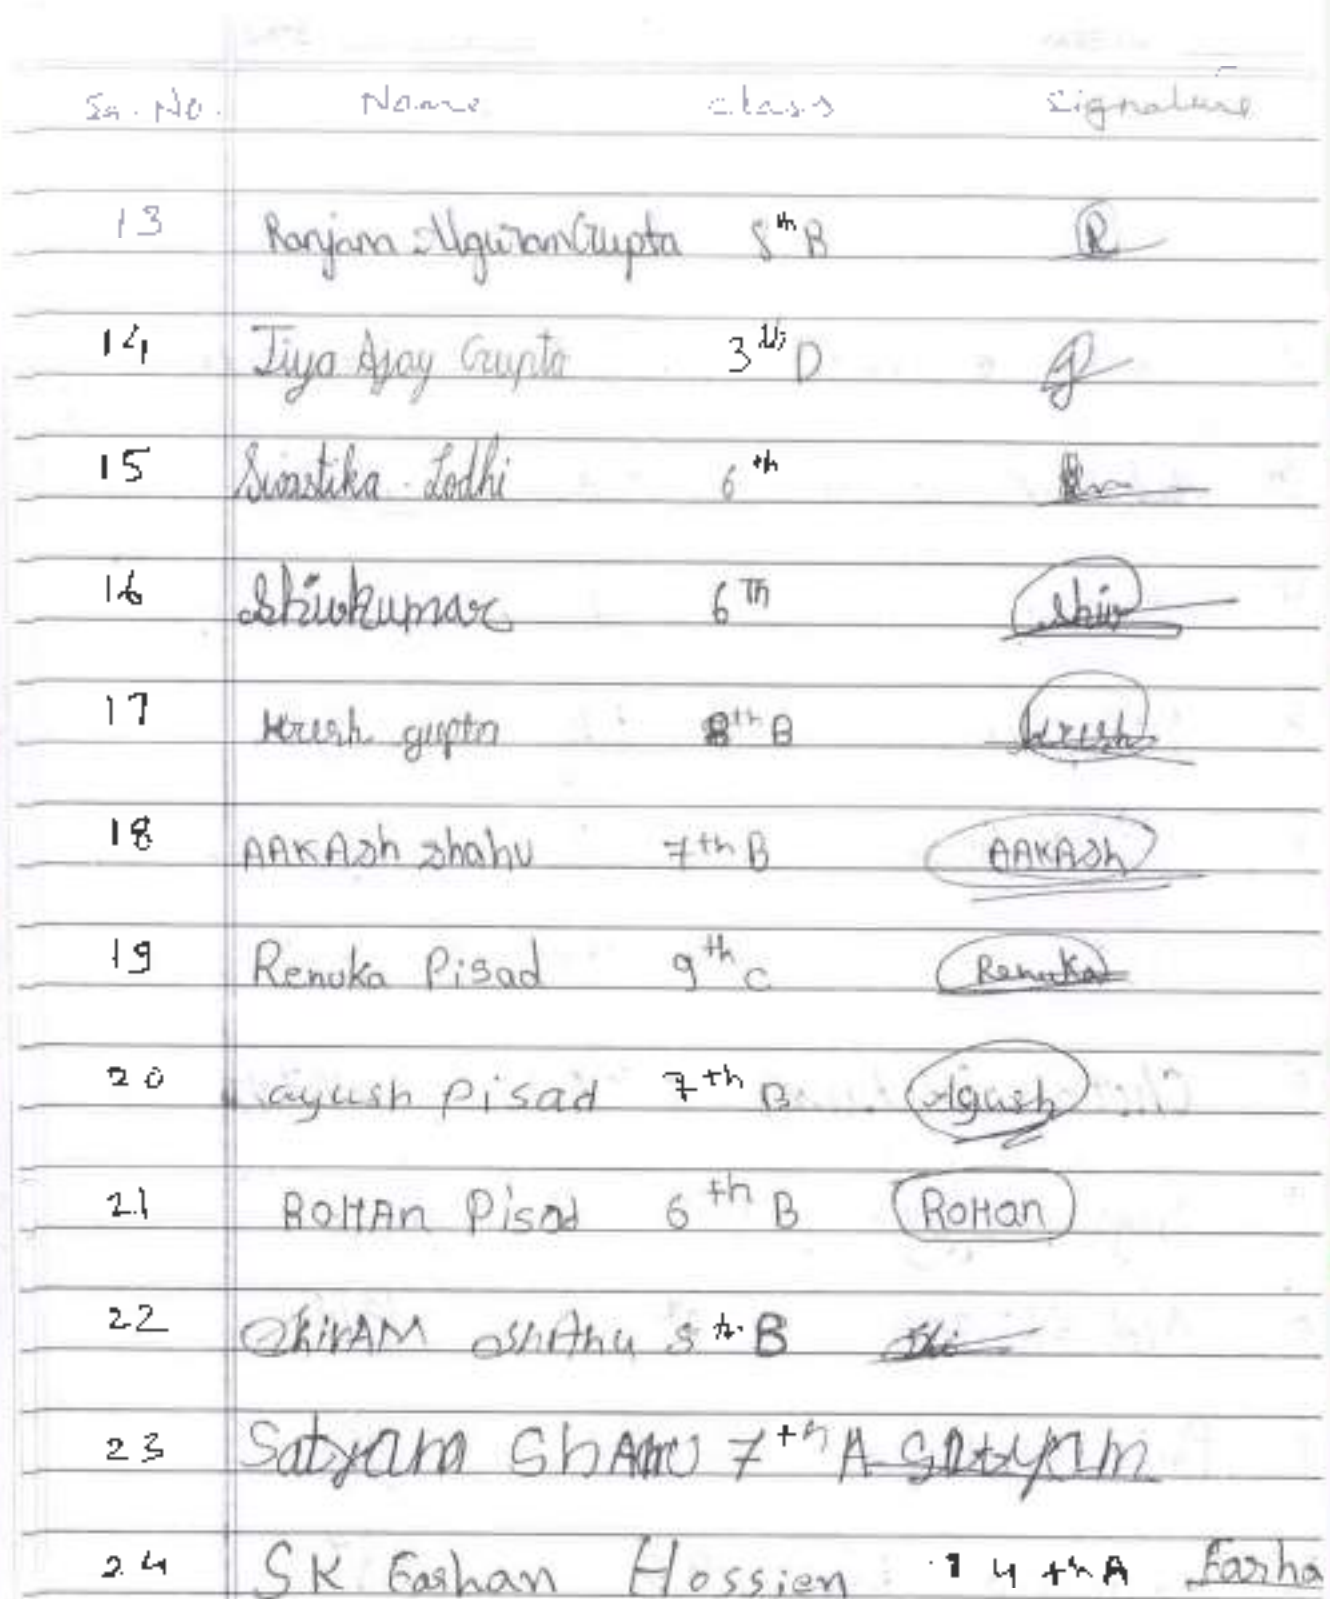 Sr. No. Name class Signature
13 Ranjana Gupta 8th B R
14 Jiya Ajay Gupta 3th D
15 Swastika Lodhi 6th
16 Shivkumar 6Th Shiv
17 Krish gupta 8th B Krish
18 AAKASh Shahu 7th B AAKASh
19 Renuka Pisad 9th C Renuka
20 ayush Pisad 7th B Ayush
21 ROHAn Pisad 6th B ROHan
22 ShivAM ShAhu th B Shi
23 Satyam ShAhu 7th A SAtyAm
24 SK Farhan Hossien 4th A Farha